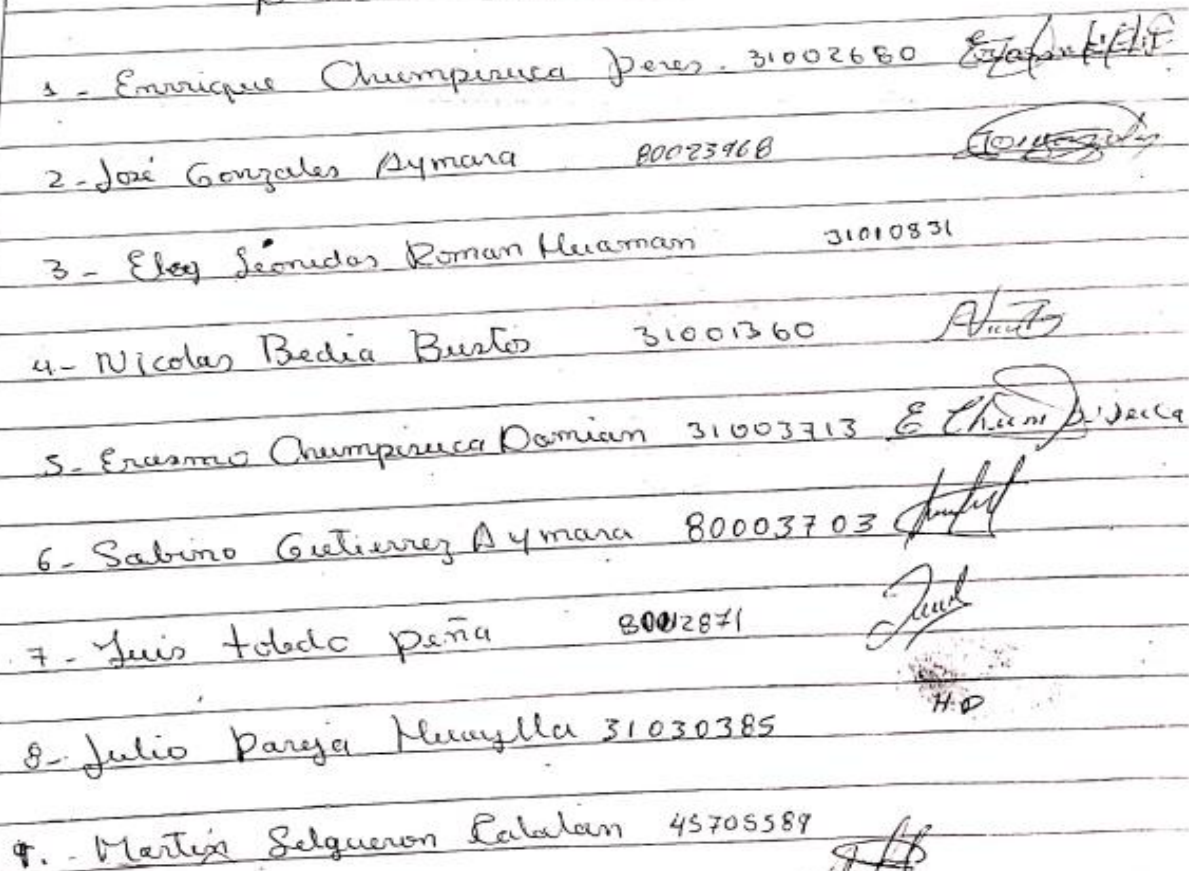 1 - Enrrique Chumpisuca Peres. 31002680
2 - José Gonzales Aymara 80023968
3 - Eloy Leonidas Roman Huaman 31010831
4 - Nicolas Bedia Bustos 31001360
5 - Erasmo Chumpisuca Damian 31003713 E Chumpisuca
6 - Sabino Gutierrez Aymara 80003703
7 - Luis toledo peña
H.D
8 - Julio Pareja Huaylla 31030385
9. - Martin Selgueron Catalan 45705589